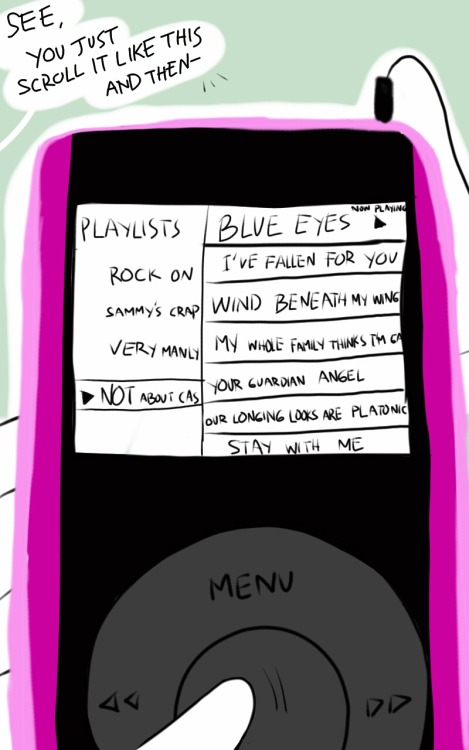 SEE,
YOU JUST
SCROLL IT LIKE THIS
AND THEN-
NOW PLAYING
PLAYLISTS
ROCK ON
SAMMY'S CRAP
VERY MANLY
NOT ABOUT CAS
BLUE EYES
I'VE FALLEN FOR YOU
WIND BENEATH MY WING
MY WHOLE FAMILY THINKS I'M GA
YOUR GUARDIAN ANGEL
OUR LONGING LOOKS ARE PLATONIC
STAY WITH ME
MENU